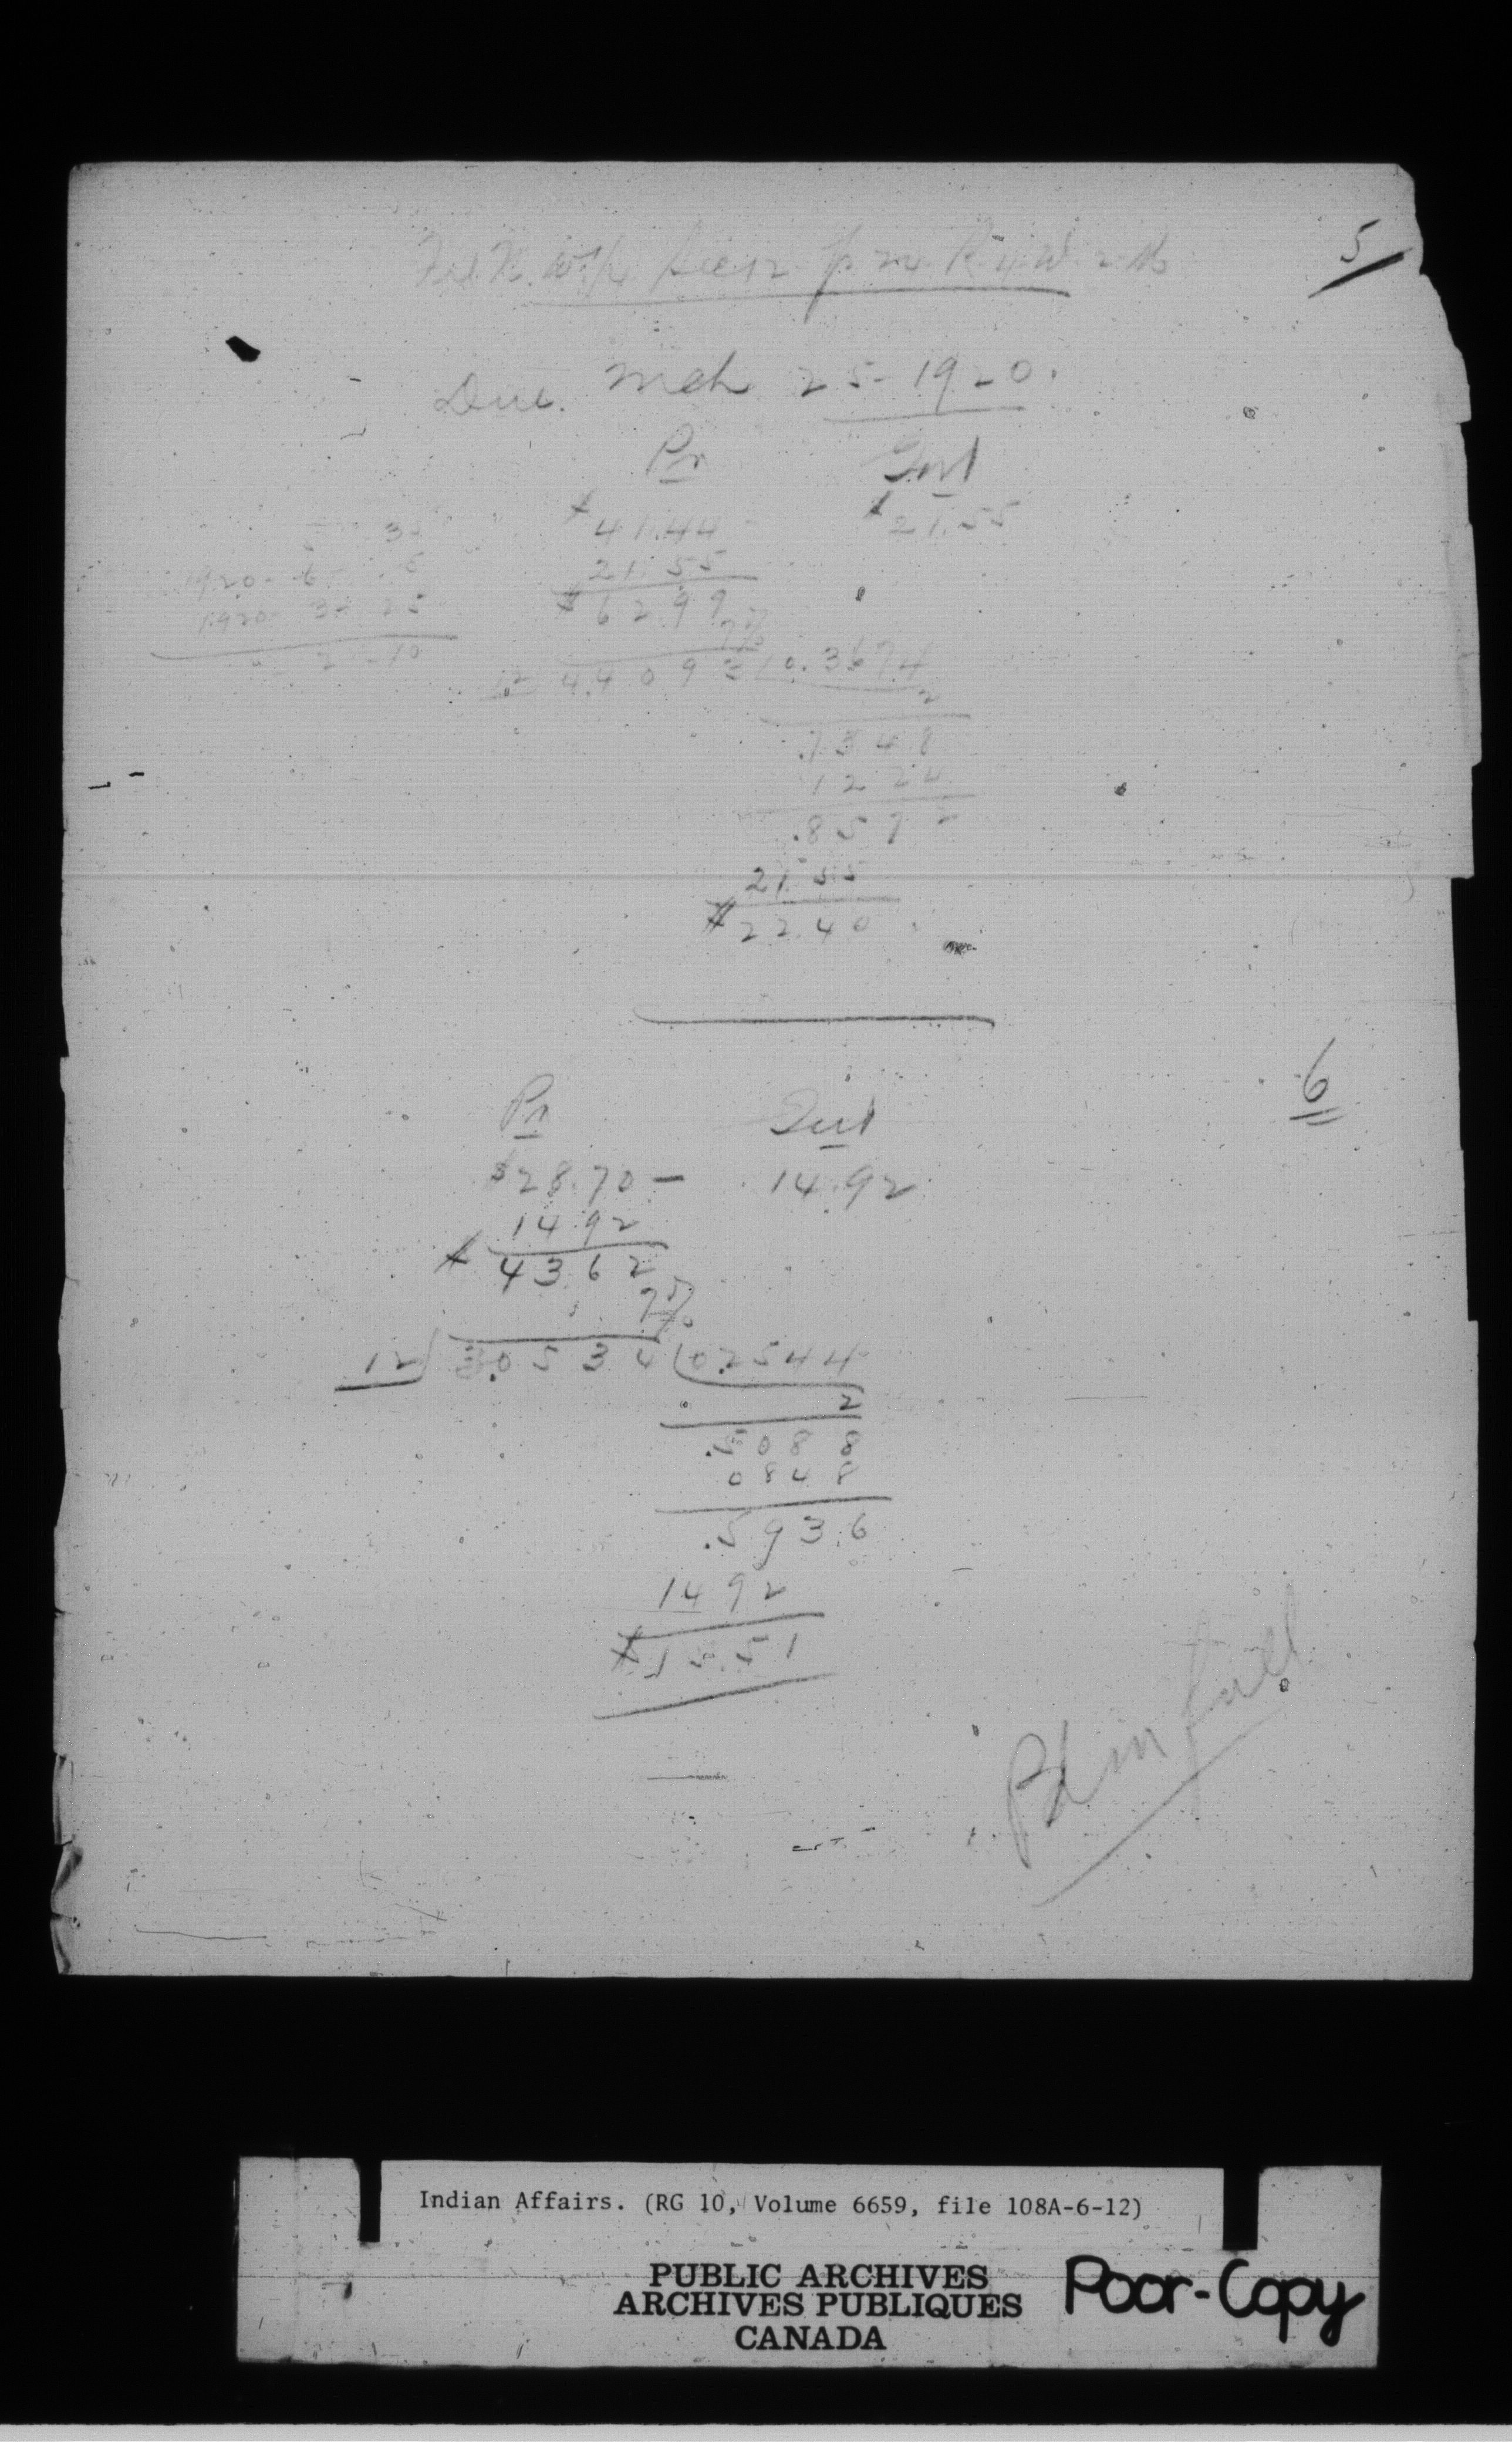 5
N. W. 1/4 Sec 12
Due. Mch 25-1920.
Pr Int
$41.44 $21.55
21.55
$6299
7%
3
1920-6- 5
1920-3-25
2-10
12 4.4093 0.3674
2
.7348
1224
.8572
21.55
$22.40
6
Pr Int
$28.70 - 14.92
14.92
$4362
7%
12 3.0534 0.2544
2
.5088
0848
.5936
1492
$15.51
Pd in full
Indian Affairs. (RG 10, Volume 6659, file 108A-6-12)
PUBLIC ARCHIVES
ARCHIVES PUBLIQUES
CANADA
Poor-Copy